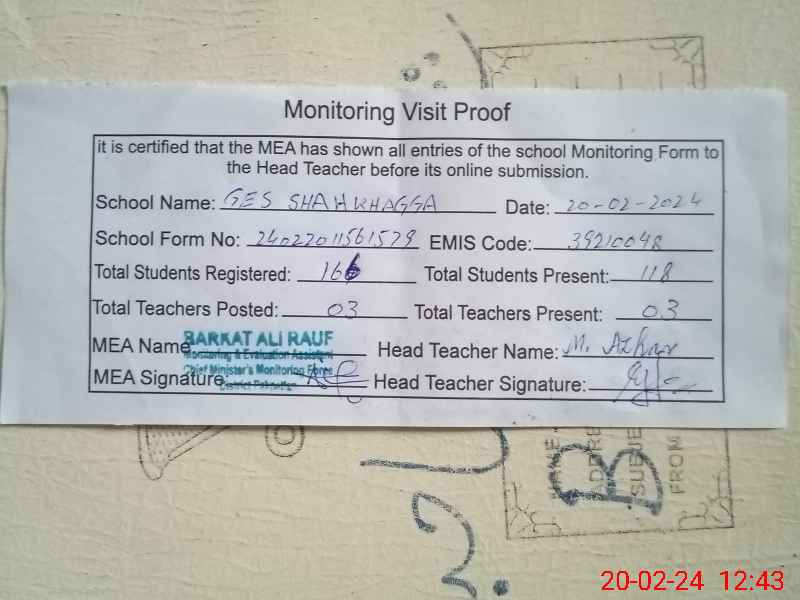 Monitoring Visit Proof
it is certified that the MEA has shown all entries of the school Monitoring Form to
the Head Teacher before its online submission.
School Name: GES SHAHKHAGGA Date: 20-02-2024
School Form No: 24022011561579 EMIS Code: 39210048
Total Students Registered: 166 Total Students Present: 118
Total Teachers Posted: 03 Total Teachers Present: 03
MEA Name BARKAT ALI RAUF Head Teacher Name: M. Azhar
Monitoring & Evaluation Assistant
Chief Minister's Monitoring Force
MEA Signature District Pakpattan Head Teacher Signature:
NAME
ADDRE
SUBJE
FROM
B
20-02-24 12:43